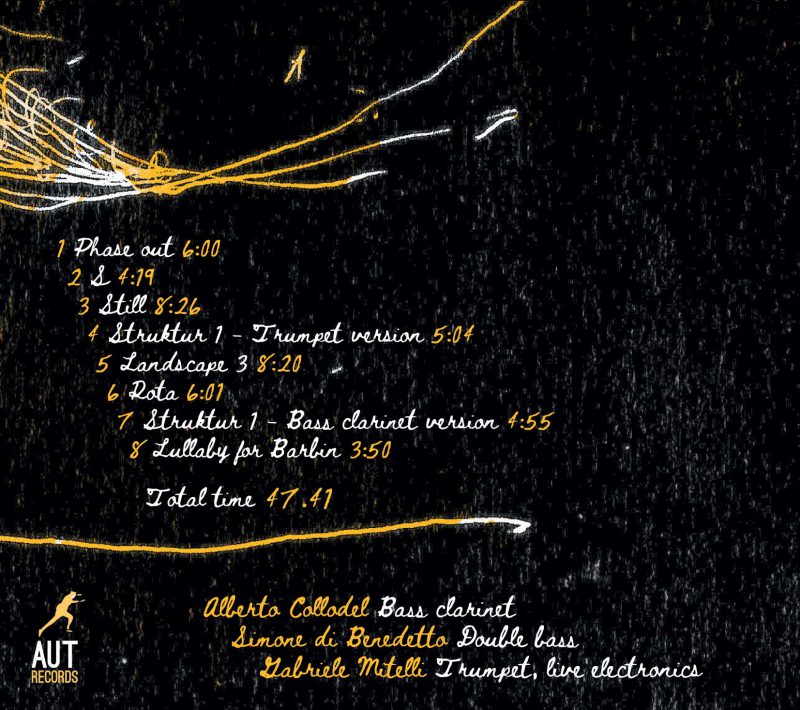 1 Phase out 6:00
2 S 4:19
3 Still 8:26
4 Struktur 1 - Trumpet version 5:04
5 Landscape 3 8:20
6 Rota 6:01
7 Struktur 1 - Bass clarinet version 4:55
8 Lullaby for Barbin 3:50
Total time 47.41
Alberto Collodel Bass clarinet
Simone di Benedetto Double bass
Gabriele Mitelli Trumpet, live electronics
AUT
RECORDS